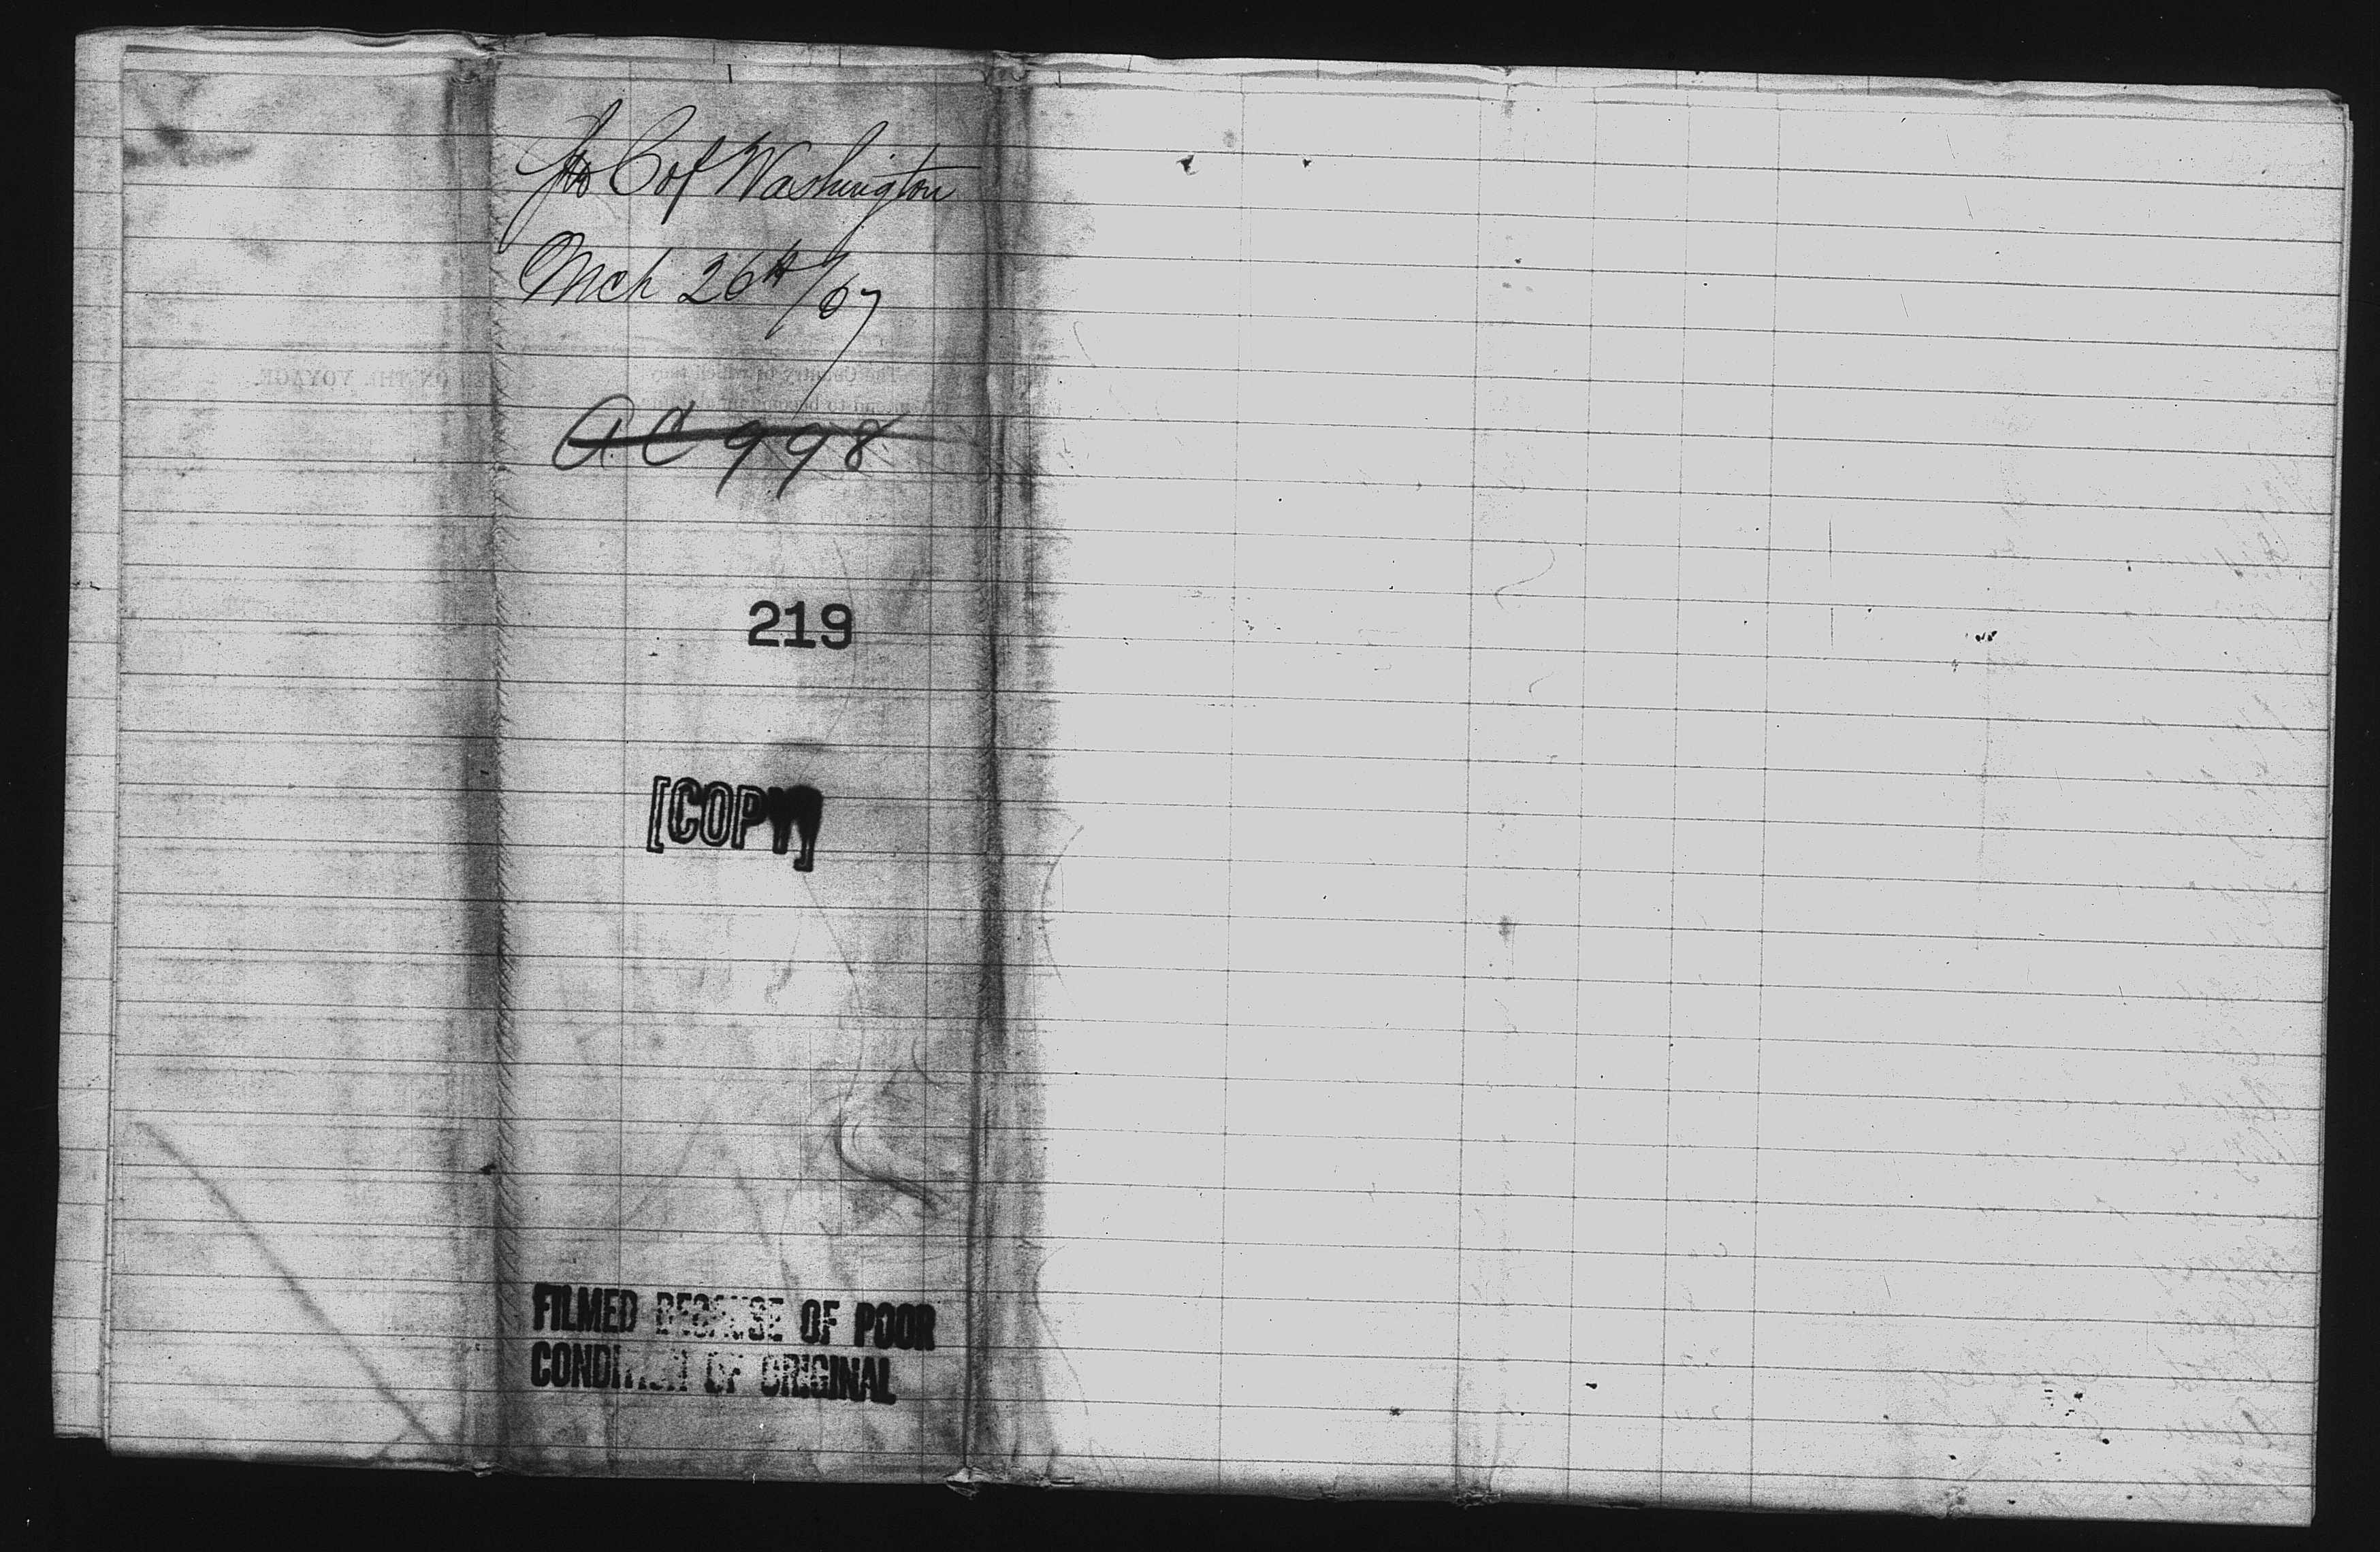 C of Washington
Mch 26th/67
AC 998
219
[COPY]
FILMED BECAUSE OF POOR
CONDITION OF ORIGINAL